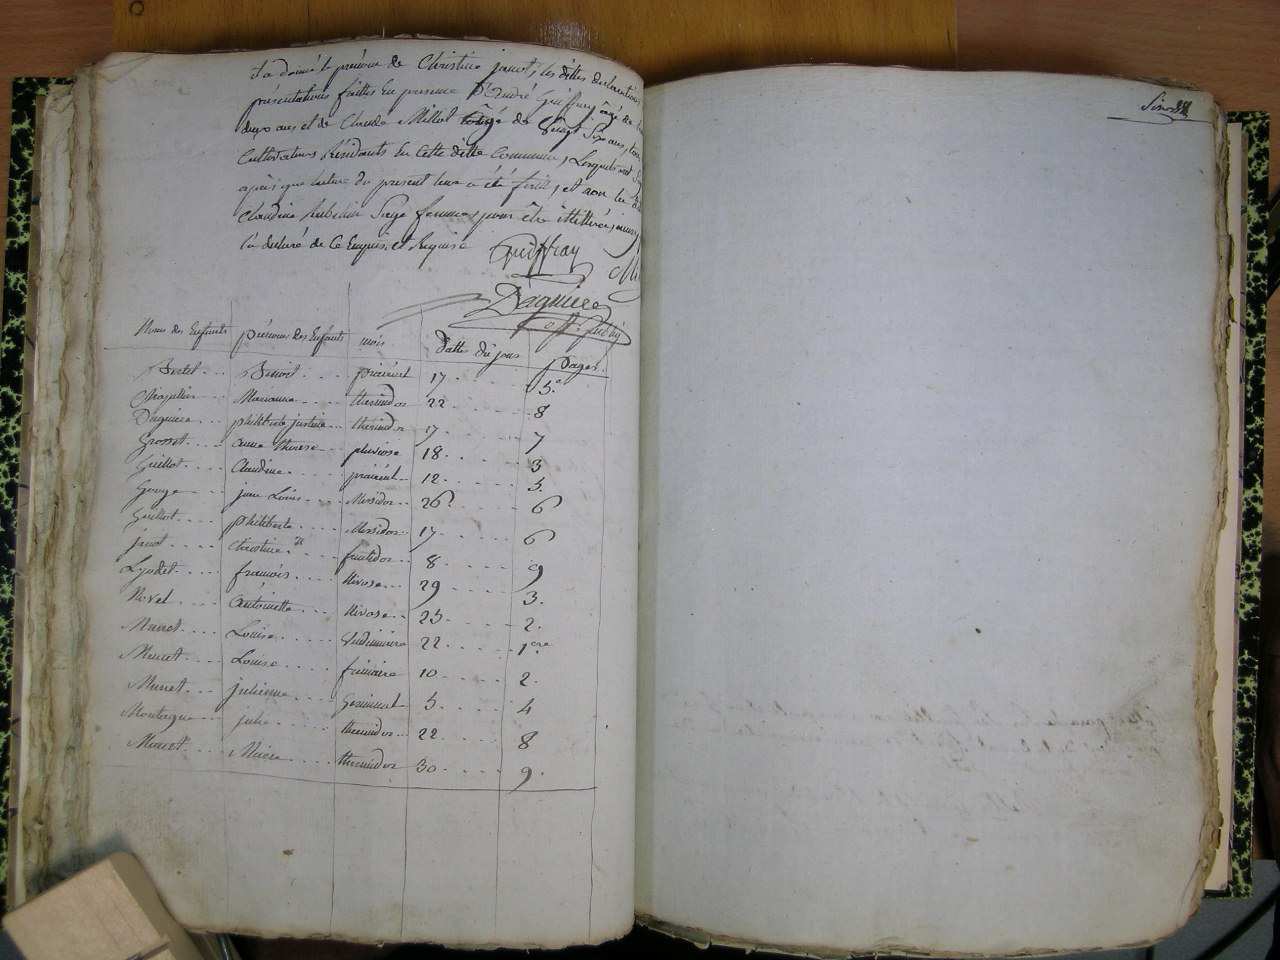 a donné le prénom de Christine janot, les dittes declarations
présentations faittes En presence D'andré Guiffray âgé de
deux ans et de Claude Millot âgé de Vingt Six ans, tous
Cultivateurs Résidants En Cette ditte Commune, Lesquels ont
après que lecture du present leur a été faitte, et non la ditte
Claudine Sage femme, pour être illittérée,
la déclaré de Ce Enquis et Requise
Guiffray
Daguiere
off. public
Noms des Enfants prénoms des Enfants mois Dattes du jour Pages
Benoit prairial 17 5
Marianne thermidor 22 8
Daguiere philiberte justine thermidor 17 7
Grosset anne therese pluviose 18 3
Guillot Claudine prairial 12 5
Gouge jean Louis Messidor 26 6
Guillot philiberte Messidor 17 6
janot Christine fructidor 8 9
Lyodet françois Nivose 29 3
Novel antoinette Nivose 25 2
Louise Vendimiaire 22 1ere
Louise frimaire 10 2
julienne Germinal 5 4
Montagne julie thermidor 22 8
thermidor 30 9